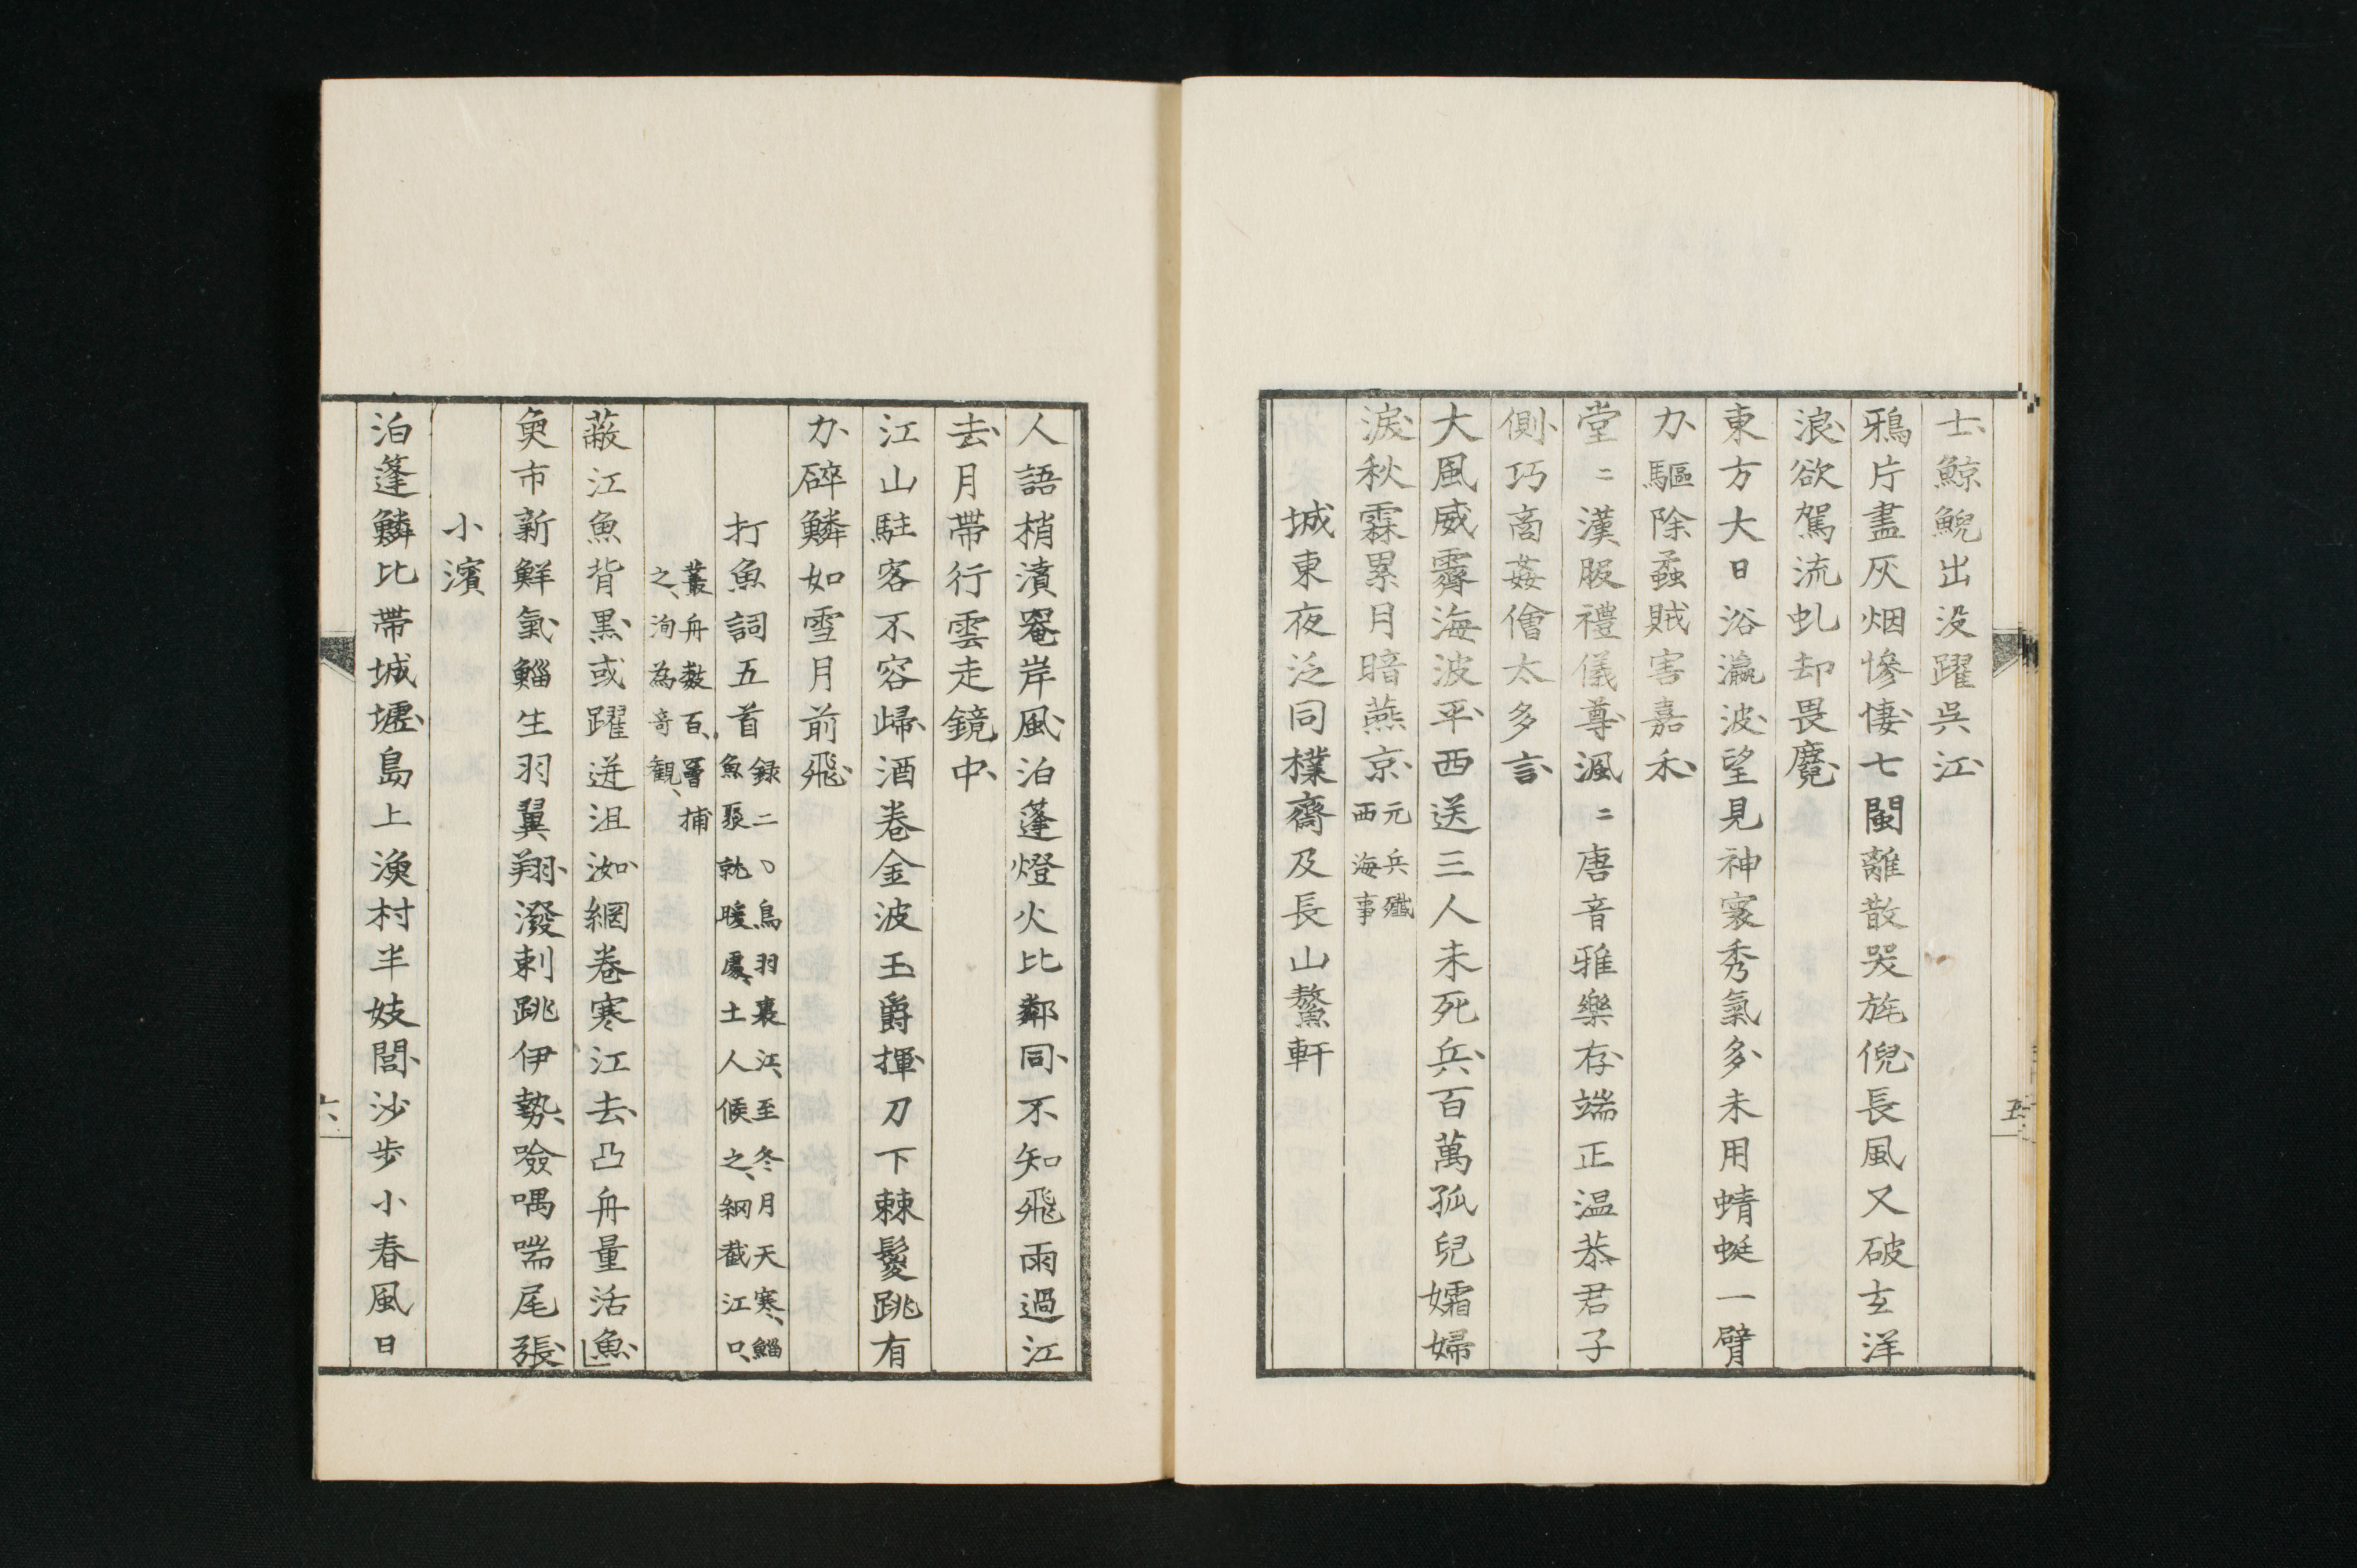 士鯨鯢出没躍呉江
鴉片盡灰烟慘悽七閩離散哭旄倪長風又破玄洋
浪欲駕流虬却畏魔
東方大日浴瀛波望見神寰秀氣多未用蜻蜓一臂
力驅除蟊賊害嘉禾
堂〻漢服禮儀尊渢〻唐音雅樂存端正温恭君子
側巧商姦儈太多言
大風威霽海波平西送三人未死兵百萬孤兒孀婦
淚秋霖累月暗燕京元兵殲西海事
城東夜泛同樸齋及長山鰲軒
五
人語梢濆罨岸風泊蓬燈火比鄰同不知飛雨過江
去月帶行雲走鏡中
江山駐客不容歸酒卷金波玉爵揮刀下棘鬉跳有
力碎鱗如雪月前飛
打魚詞五首録二、鳥羽裹江、至冬月天寒、鯔魚聚就暖處、土人候之、網截江口、
叢舟數百、罾捕之、洵為奇觀、
蔽江魚背黒或躍迸沮洳網卷寒江去凸舟量活魚
魚市新鮮氣鯔生羽翼翔潑剌跳伊勢噞喁喘尾張
小濱
泊蓬鱗比帶城壚島上漁村半妓閭沙步小春風日
六